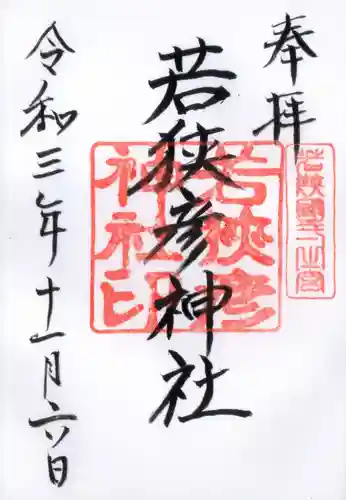 奉拝
若狭國一之宮
若狭彦神社
若狭彦神社印
令和三年十一月六日